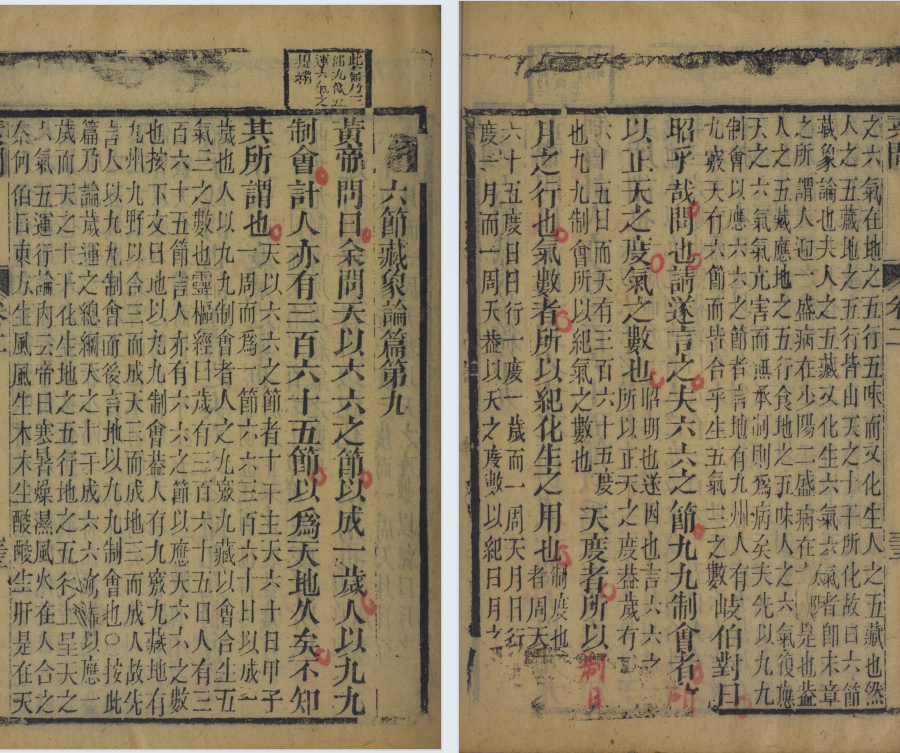 此篇乃三
部九候五
運六氣之
提綱
六節藏象論篇第九
黃帝問曰余聞天以六六之節以成一歲人以九九
制會計人亦有三百六十五節以爲天地久矣不知
其所謂也
天以六六之節者十干主天六十日甲子
一周而爲一節六六三百六十日以成一
歲也人以九九制會者人之九竅九藏以會合生五
氣三之數也靈樞經曰歲有三百六十五日人有三
百六十五節言人亦有六六之節以應天六六之數
也按下文曰地以九九制會蓋人有九竅九藏地有
九州九野以合三而成天三而成地三而成人故先
言人以九九制會而後言地以九九制會也○按此
篇乃論歲運之總綱天之十干成六六之節以應一
歲而天之十干化生地之五行地之五行上呈天之
六氣五運行論內云帝曰寒暑燥濕風火在人合之
柰何伯曰東方生風風生木木生酸酸生肝是在天
之六氣在地之五行五味而又化生人之五藏也然
人之五藏地之五行皆由天之十干所化故曰六節
藏象論也夫人之五藏又化生六氣六氣者卽末章
之所謂人迎一盛病在少陽二盛病在太是也蓋
人之五藏應地之五行食地之五味人之六氣復應
天之六氣氣亢害而無承制則爲病矣夫先以九九
制會以應六六之節者言地有九州人有
九竅天有六節而皆合乎生五氣三之數
岐伯對曰
昭乎哉問也請遂言之夫六六之節九九制會者所
以正天之度氣之數也
昭明也遂因也言六六之
所以正天之度蓋歲有
六十五日而天有三百六十五度
也九九制會所以紀氣之數也
天度者所以制日
月之行也氣數者所以紀化生之用也
制度也
者周天
六十五度日日行一度一歲而一周天月日行
度一月而一周天蓋以天之度數以紀日月之
素問
卷二